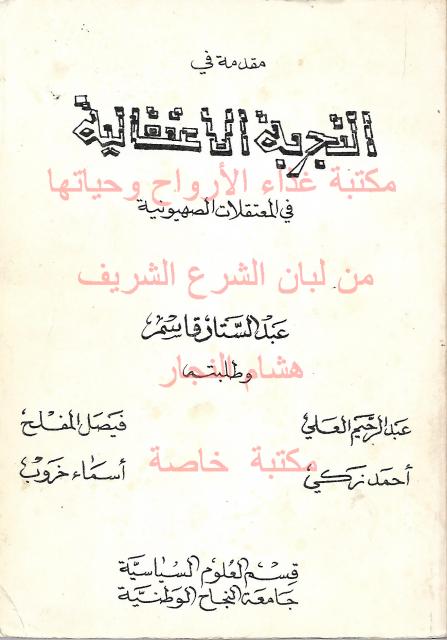 مقدمة في
التجربة الاعتقالية
مكتبة غذاء الأرواح وحياتها
في المعتقلات الصهيونية
من لبان الشرع الشريف
عبد الستار قاسم
هشام النجار
وطلبته
عبد الرحيم العلي فيصل المفلح
مكتبة خاصة
أحمد زكي أسماء خروب
قسم العلوم السياسية
جامعة النجاح الوطنية